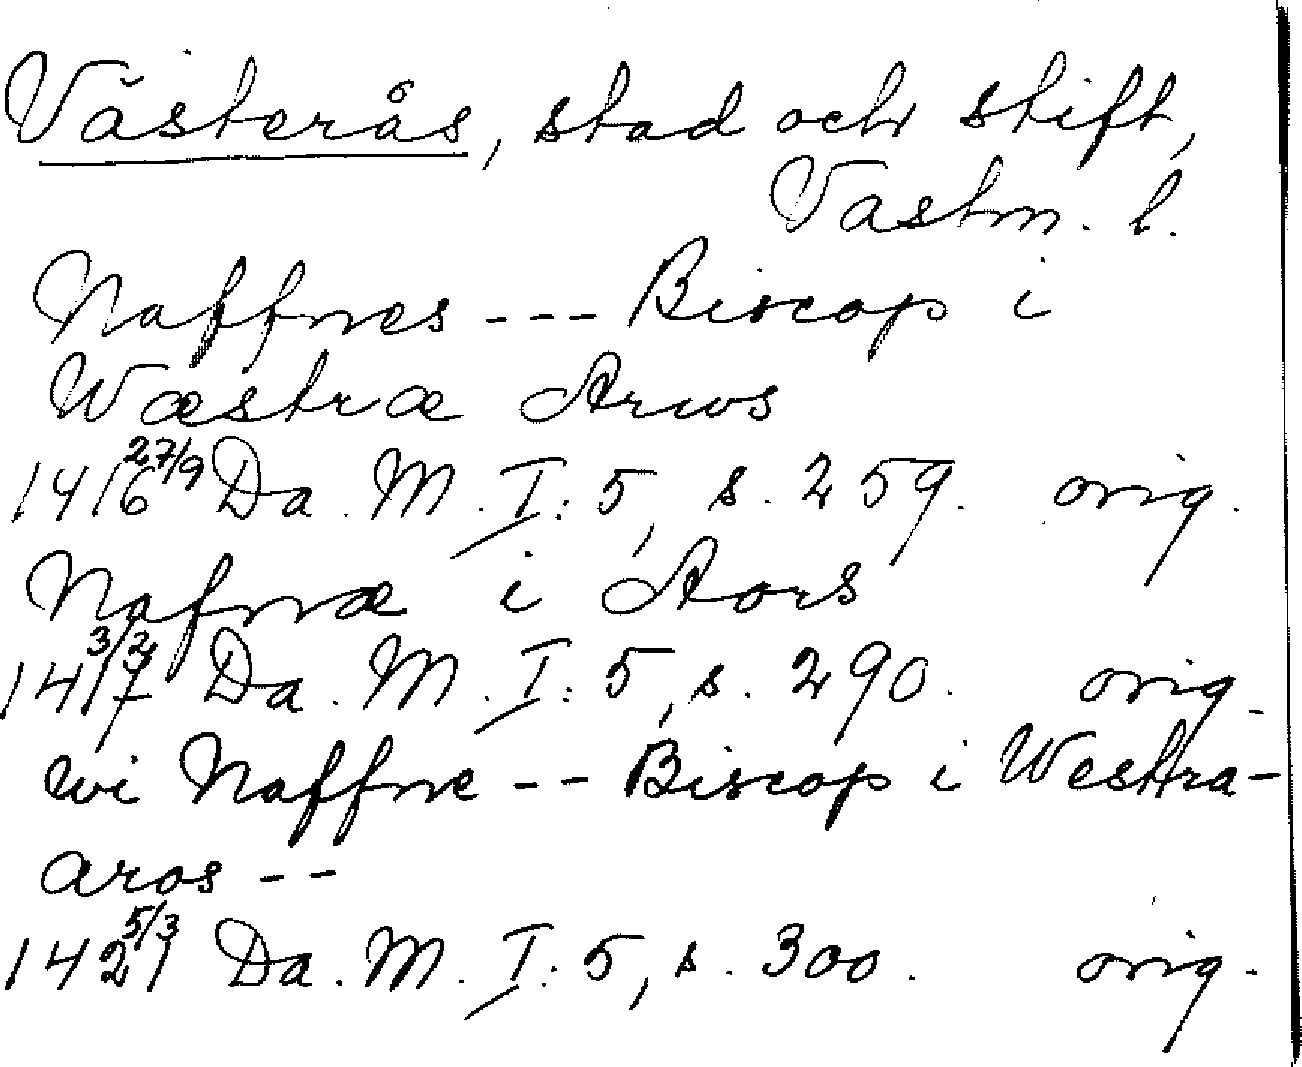 Västerås, stad och stift,
Västm. l.
Naffnes --- Biscop i
Wæstræ Arws
1416 27/9 Da. M. I: 5, s. 259. orig.
Nafnæ i Aors
1417 3/2 Da. M. I: 5, s. 290. orig.
wi Naffne -- Biscop i Westra-
aros --
1421 5/3 Da. M. I: 5, s. 300. orig.